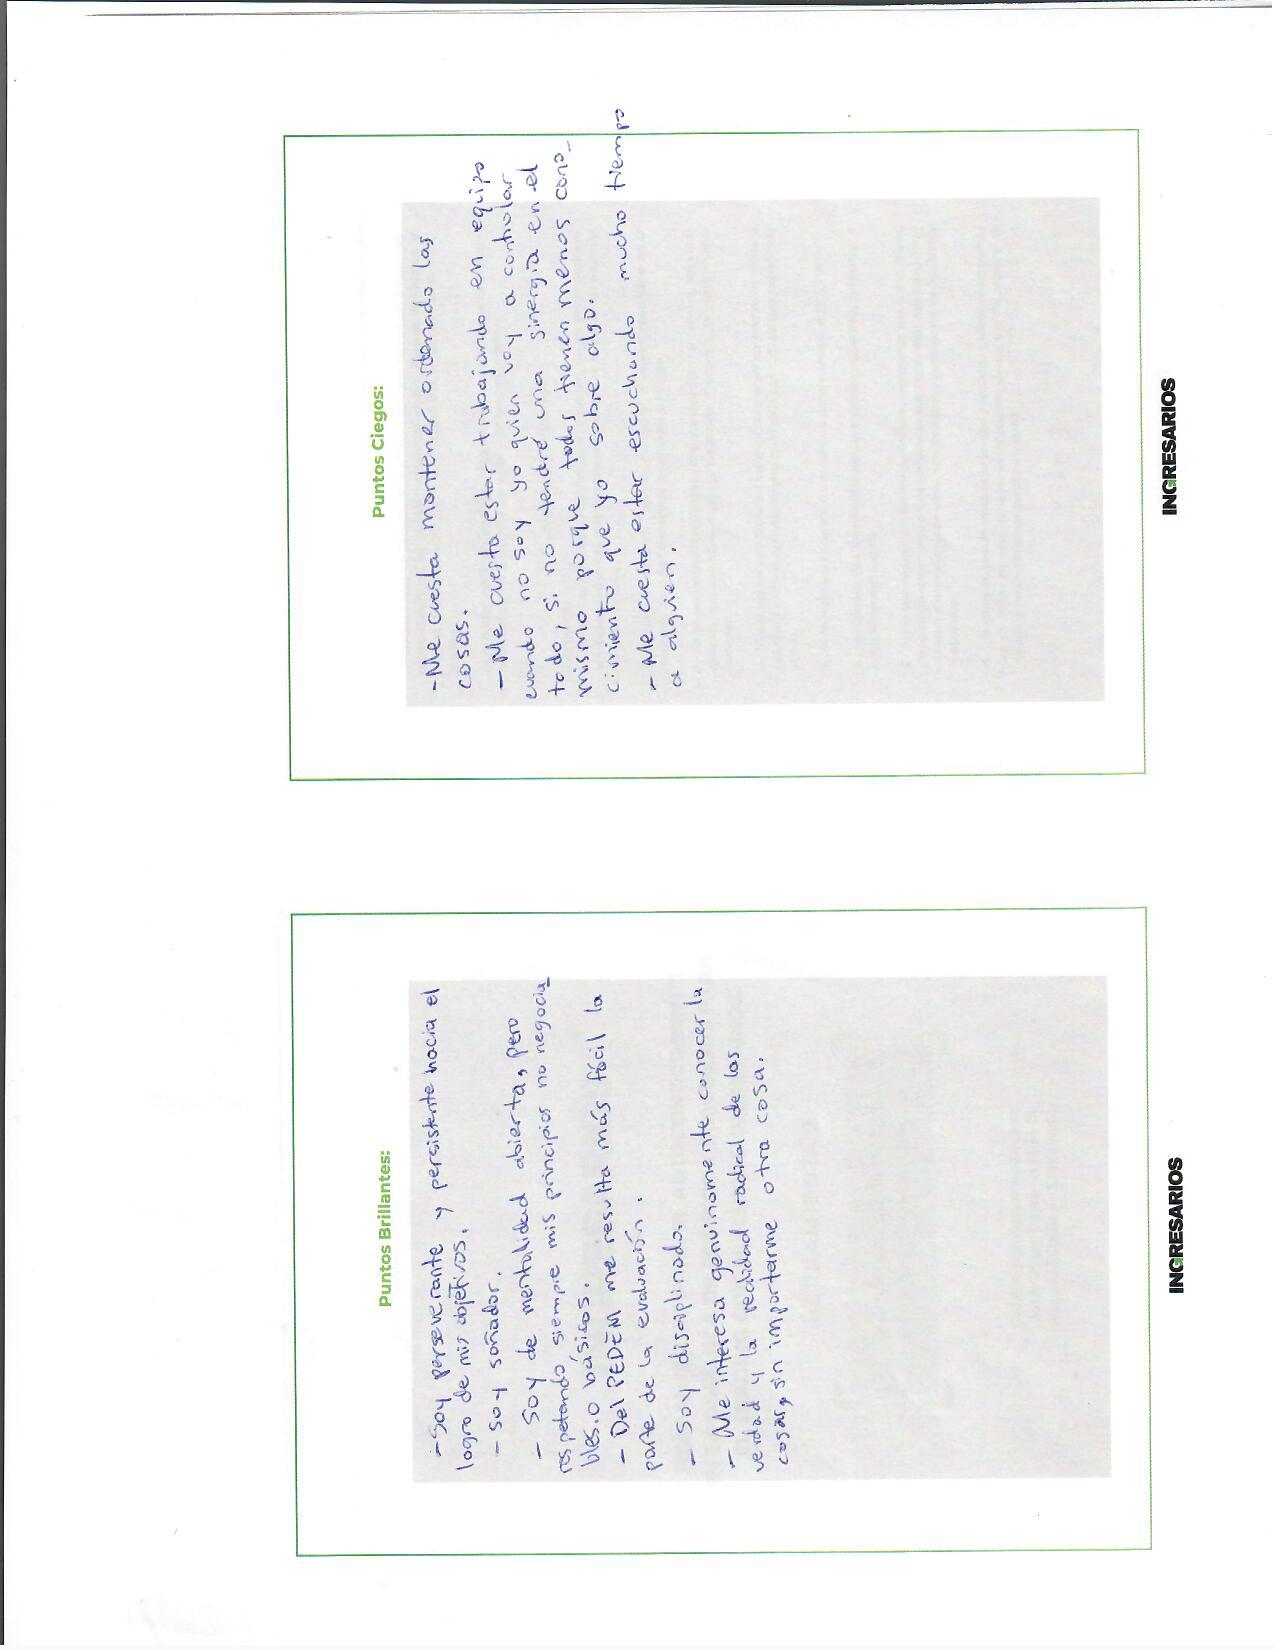 Puntos Brillantes:
- Soy perseverante y persistente hacia el
logro de mis objetivos.
- Soy soñador.
- Soy de mentalidad abierta, pero
respetando siempre mis principios no negocia_
bles.o básicos.
- Del PEDEM me resulta más fácil la
parte de la evaluación.
- Soy disciplinado.
- Me interesa genuinamente conocer la
verdad y la realidad radical de las
cosas, sin importarme otra cosa.
INGRESARIOS
Puntos Ciegos:
- Me cuesta mantener ordenado las
cosas.
- Me cuesta estar trabajando en equipo
cuando no soy yo quien voy a controlar
todo, si no tendré una sinergia en el
mismo porque todos tienen menos cono_
cimiento que yo sobre algo.
- Me cuesta estar escuchando mucho tiempo
a alguien.
INGRESARIOS